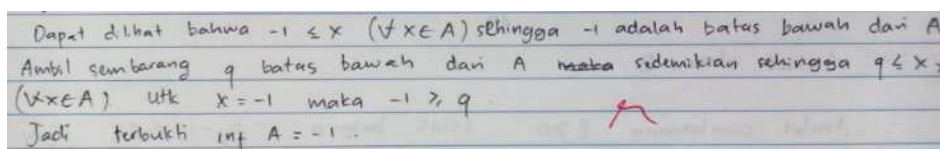 Dapat dilihat bahwa -1 ≤ x (∀ x ∈ A) sehingga -1 adalah batas bawah dari A
Ambil sembarang q batas bawah dari A maka sedemikian sehingga q ≤ x,
(∀x∈A) utk x = -1 maka -1 ≥ q.
Jadi terbukti inf A = -1.